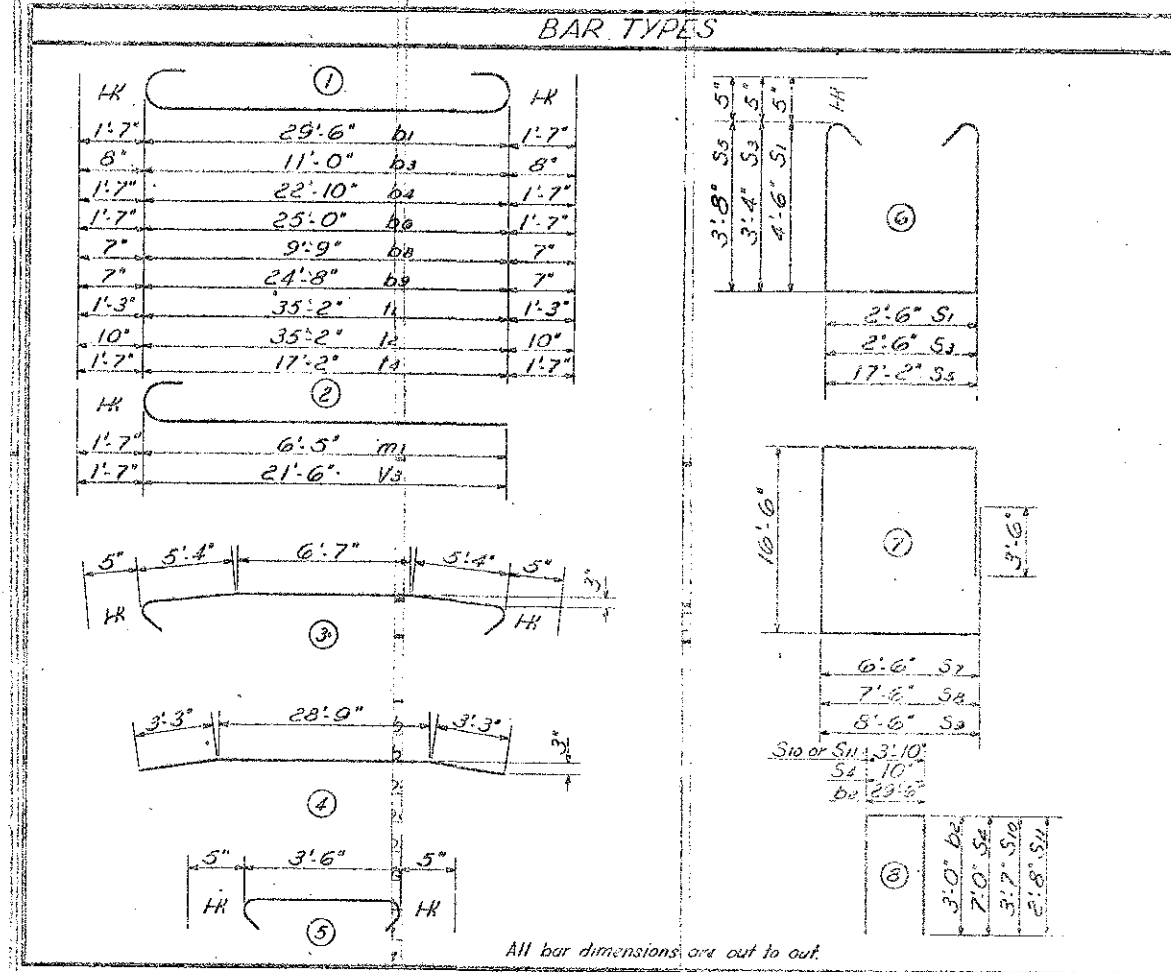 BAR TYPES
①
HK HK
1'-7" 29'-6" b1 1'-7"
8" 11'-0" b3 8"
1'-7" 22'-10" b4 1'-7"
1'-7" 25'-0" b6 1'-7"
7" 9'-9" b8 7"
7" 24'-8" b9 7"
1'-3" 35'-2" t1 1'-3"
10" 35'-2" t2 10"
1'-7" 17'-2" t4 1'-7"
②
HK
1'-7" 6'-5" m1
1'-7" 21'-6" V3
5" 5'-4" 6'-7" 5'-4" 5"
3"
HK HK
③
3'-3" 28'-9" 3'-3"
3"
④
5" 3'-6" 5"
HK HK
⑤
5" 5" 5" HK
3'-8" S5
3'-4" S3
4'-6" S1
⑥
2'-6" S1
2'-6" S3
17'-2" S5
16'-6"
⑦
3'-6"
6'-6" S7
7'-6" S8
8'-6" S9
S10 or S11 3'-10"
S4 10"
b2 29'-6"
⑧
3'-0" b2
7'-0" S4
3'-7" S10
2'-8" S11
All bar dimensions are out to out.